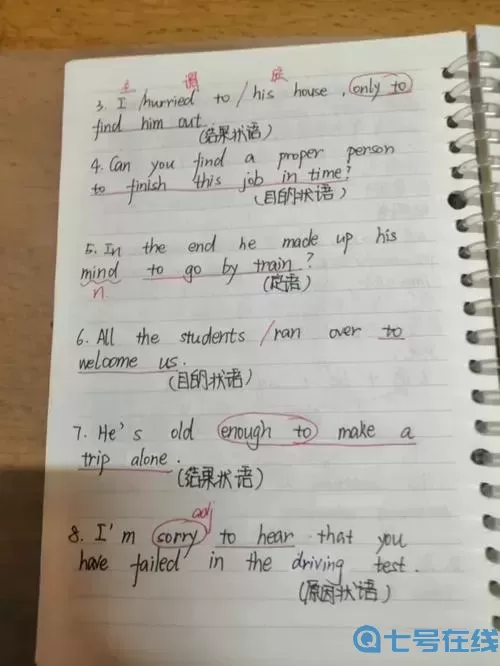 主 谓 宾
3. I /hurried to / his house, only to
find him out
(结果状语)
4. Can you find a proper person
to finish this job in time?
(目的状语)
5. In the end he made up his
mind to go by train?
n. (定语)
6. All the students /ran over to
welcome us.
(目的状语)
7. He's old enough to make a
trip alone.
(结果状语)
adj
8. I'm sorry to hear that you
have failed in the driving test.
(原因状语)
七号在线